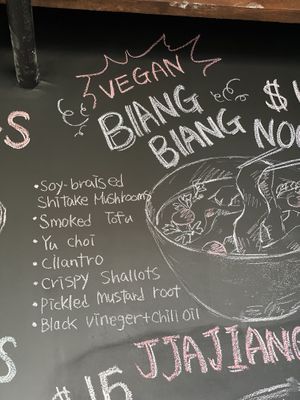 VEGAN
BIANG
BIANG NOO
$1
S
• Soy-braised
Shitake Mushrooms
• Smoked Tofu
• Yu choi
• Cilantro
• Crispy Shallots
• Pickled Mustard root
• Black vineger+Chili oil
S
JJAJIANG
$15